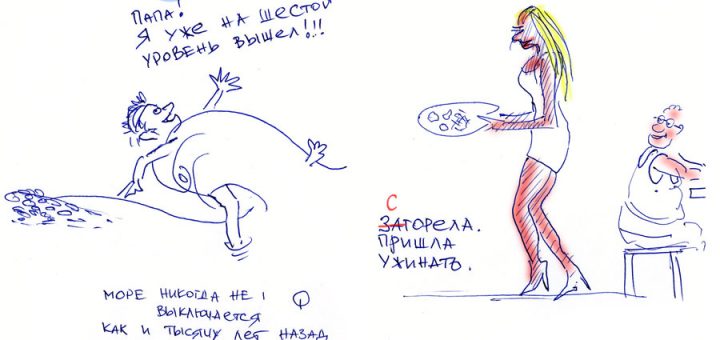 ПАПА!
Я УЖЕ НА ШЕСТОЙ
УРОВЕНЬ ВЫШЕЛ!!!
МОРЕ НИКОГДА НЕ
ВЫКЛЮЧАЕТСЯ
КАК И ТЫСЯЧУ ЛЕТ НАЗАД
С
ЗАГОРЕЛА.
ПРИШЛА
УЖИНАТЬ.